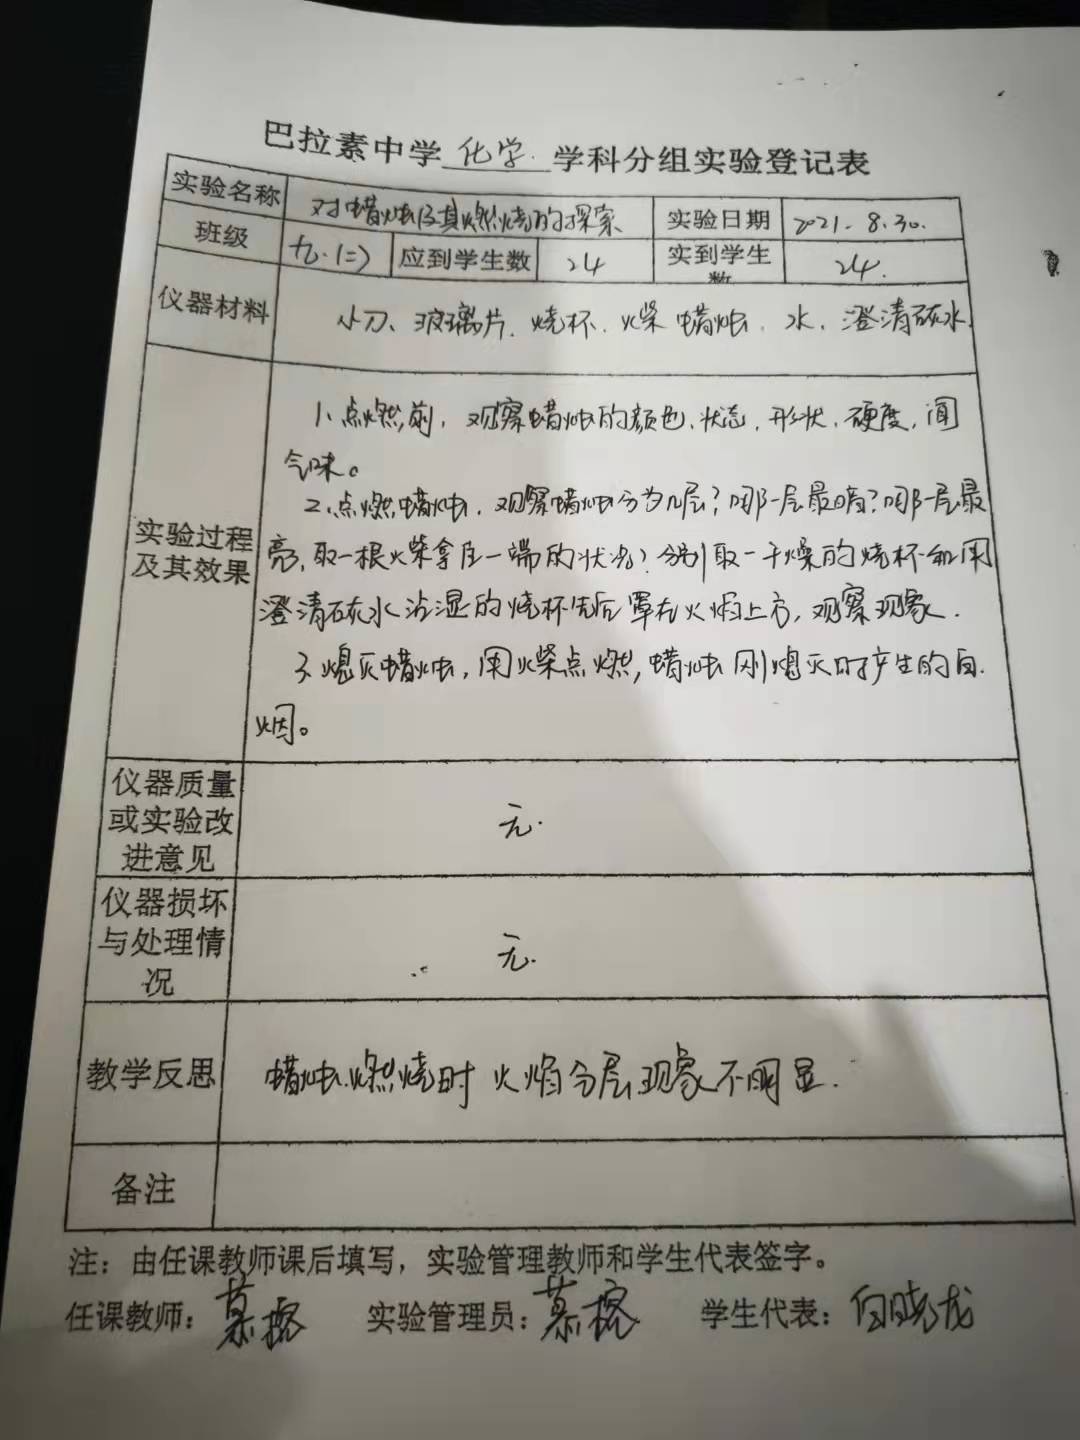 巴拉素中学 化学 学科分组实验登记表
实验名称 对蜡烛及其燃烧的探索 实验日期 2021.8.30.
班级 九.(二) 应到学生数 24 实到学生数 24.
仪器材料 小刀、玻璃片、烧杯、火柴 蜡烛、水、澄清石灰水.
1、点燃前，观察蜡烛的颜色、状态，形状、硬度，闻
气味。
2、点燃蜡烛，观察蜡烛分为几层？哪一层最暗？哪一层最
实验过程及其效果
亮，取一根火柴拿住一端的状况？分别取一干燥的烧杯和用
澄清石灰水沾湿的烧杯先后罩在火焰上方，观察现象.
3、熄灭蜡烛，用火柴点燃，蜡烛刚熄灭时产生的白
烟。
仪器质量或实验改进意见 无.
仪器损坏与处理情况 无.
教学反思 蜡烛燃烧时火焰分层现象不明显.
备注
注：由任课教师课后填写，实验管理教师和学生代表签字。
任课教师： 实验管理员： 学生代表：白晓龙